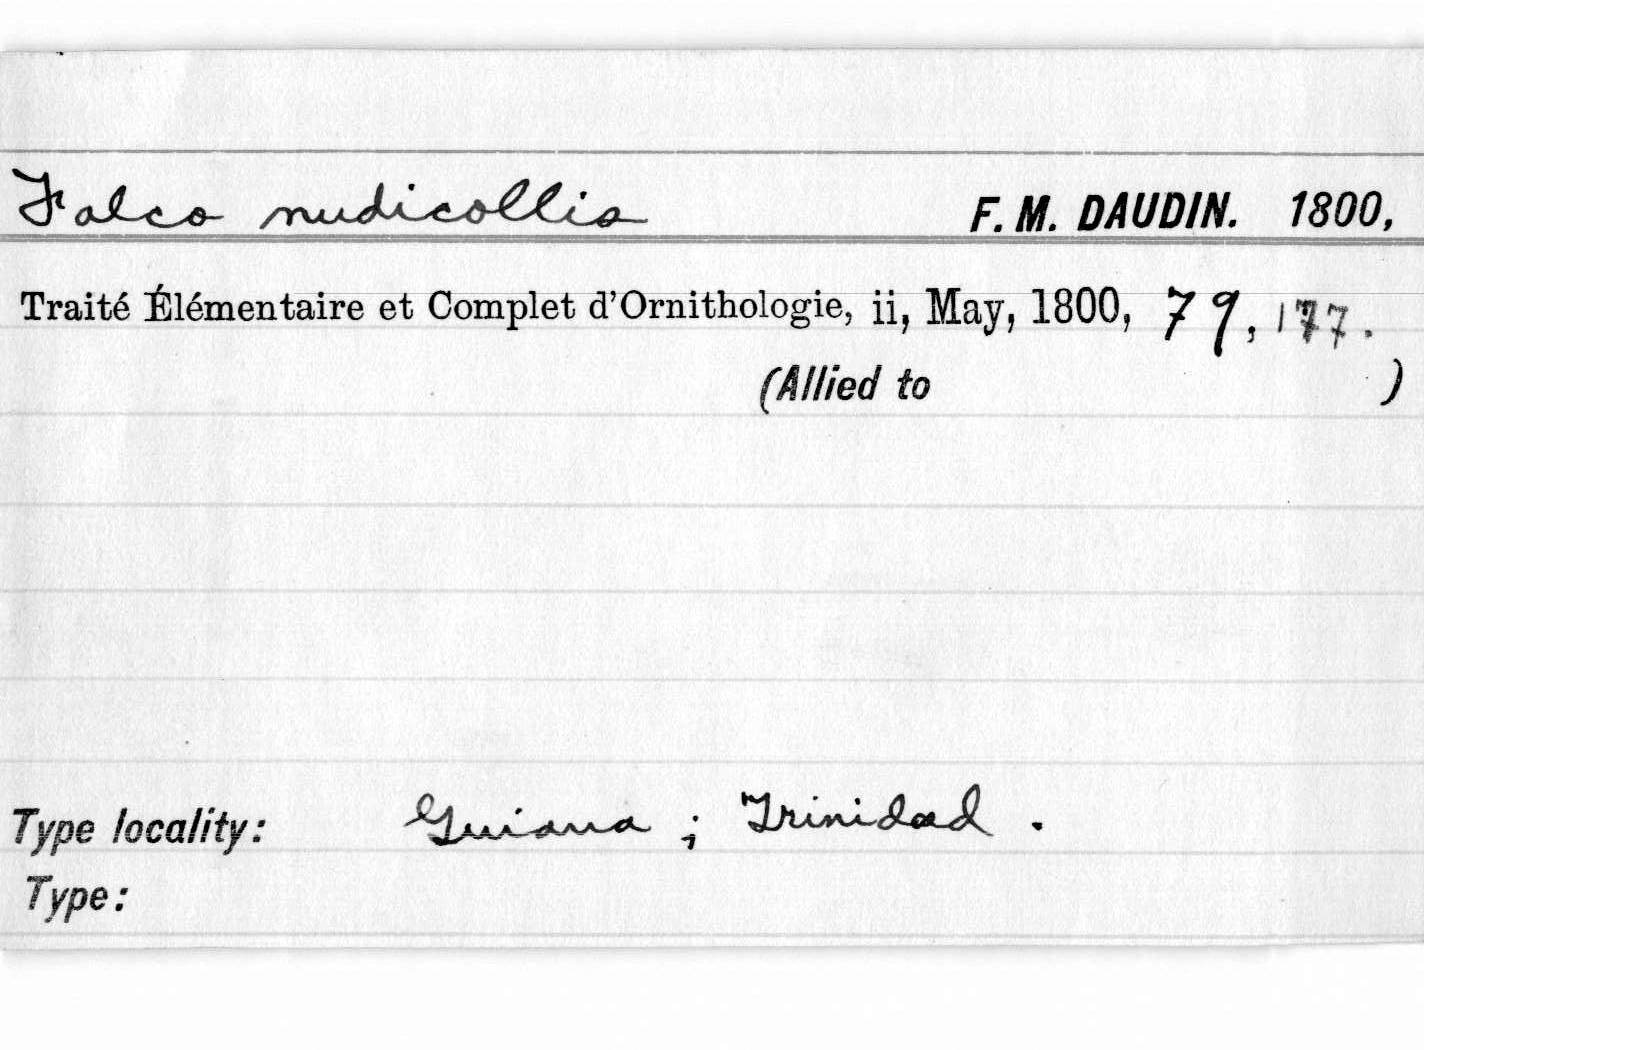 Falco nudicollis F. M. DAUDIN. 1800,
Traité Élémentaire et Complet d'Ornithologie, ii, May, 1800, 79, 177.
(Allied to )
Type locality: Guiana ; Trinidad .
Type: